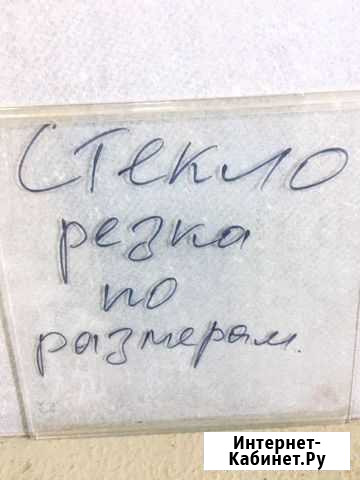 Стекло
резка
по
размерам.
Интернет-
Кабинет.Ру